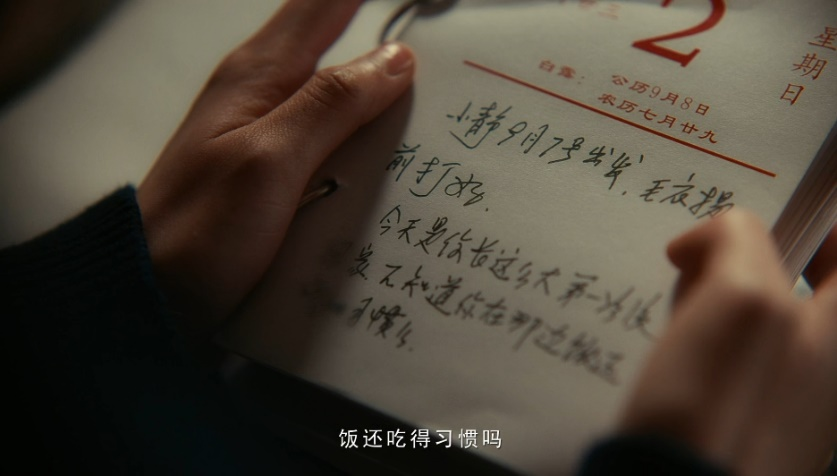 2
星期日
白露: 公历9月8日
农历七月廿九
小静9月7号出发,毛衣提
前打好.
今天是你长这么大第一次
不知道你在那边饭还
习惯么.
饭还吃得习惯吗